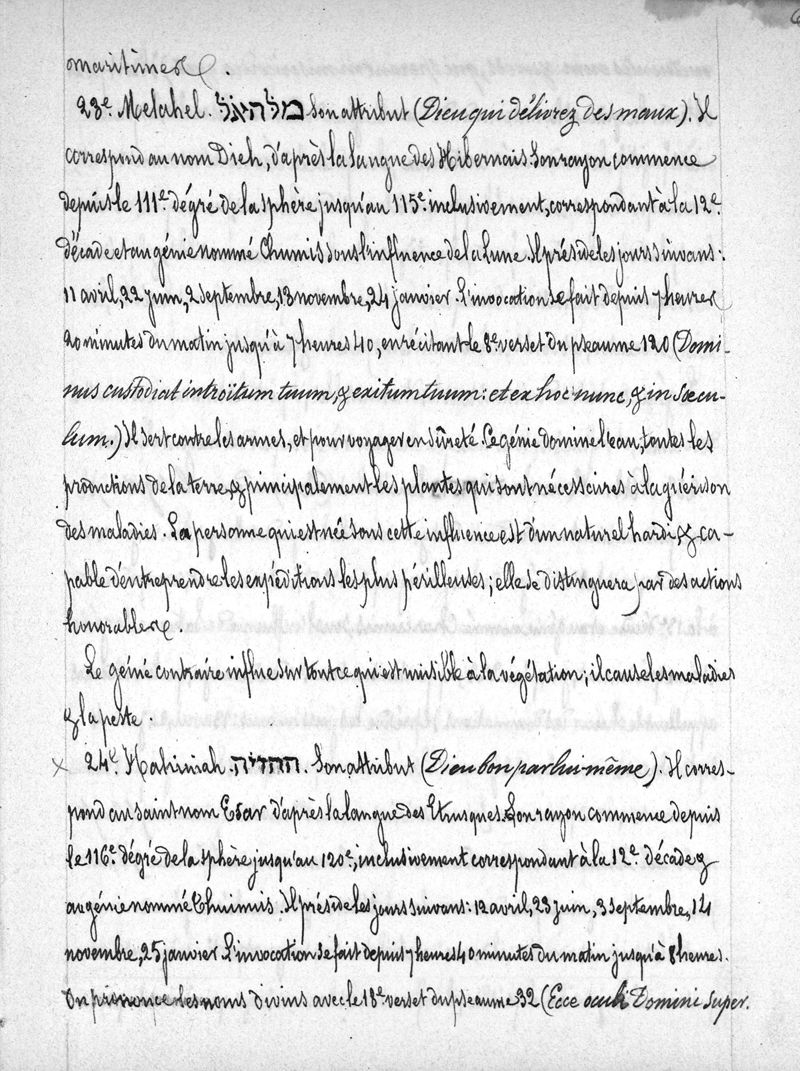 maritimes.
23e. Melahel. מלהאל Son attribut (Dieu qui délivrez des maux). Il
correspond au nom Dieh, d'après la langue des Hibernais. Son rayon commence
depuis le 111e. dégré de la sphère jusqu'au 115e. inclusivement, correspondant à la 12e.
décade et au génie nommé Chumis sous l'influence de la Lune. Il préside les jours suivans:
11 avril, 22 juin, 2 septembre, 13 novembre, 24 janvier. L'invocation se fait depuis 7 heures
20 minutes du matin jusqu'à 7 heures 40, en récitant le 8e verset du pseaume 120 (Domi-
nus custodiat introïtum tuum, & exitum tuum: et ex hoc nunc, & in sœcu-
lum.) Il sert contre les armes, et pour voyager en sûreté. Ce génie domine l'eau, toutes les
productions de la terre, & principalement les plantes qui sont nécessaires à la guérison
des maladies. La personne qui est née sous cette influence est d'un naturel hardi, & ca-
pable d'entreprendre les expéditions les plus périlleuses; elle se distinguera par des actions
honorables.
Le génie contraire influe sur tout ce qui est nuisible à la végétation; il cause les maladies
& la peste.
24e. Hahiniah. ההויה. Son attribut (Dieu bon par lui-même). Il corres-
pond au saint nom Esar d'après la langue des Etrusques. Son rayon commence depuis
le 116e. dégré de la sphère jusqu'au 120e, inclusivement correspondant à la 12e. décade &
au génie nommé Thuimis. Il préside les jours suivans: 12 avril, 23 juin, 3 septembre, 14
novembre, 25 janvier. L'invocation se fait depuis 7 heures 40 minutes du matin jusqu'à 8 heures.
On prononce les noms divins avec le 18e verset du pseaume 32 (Ecce oculi Domini super.